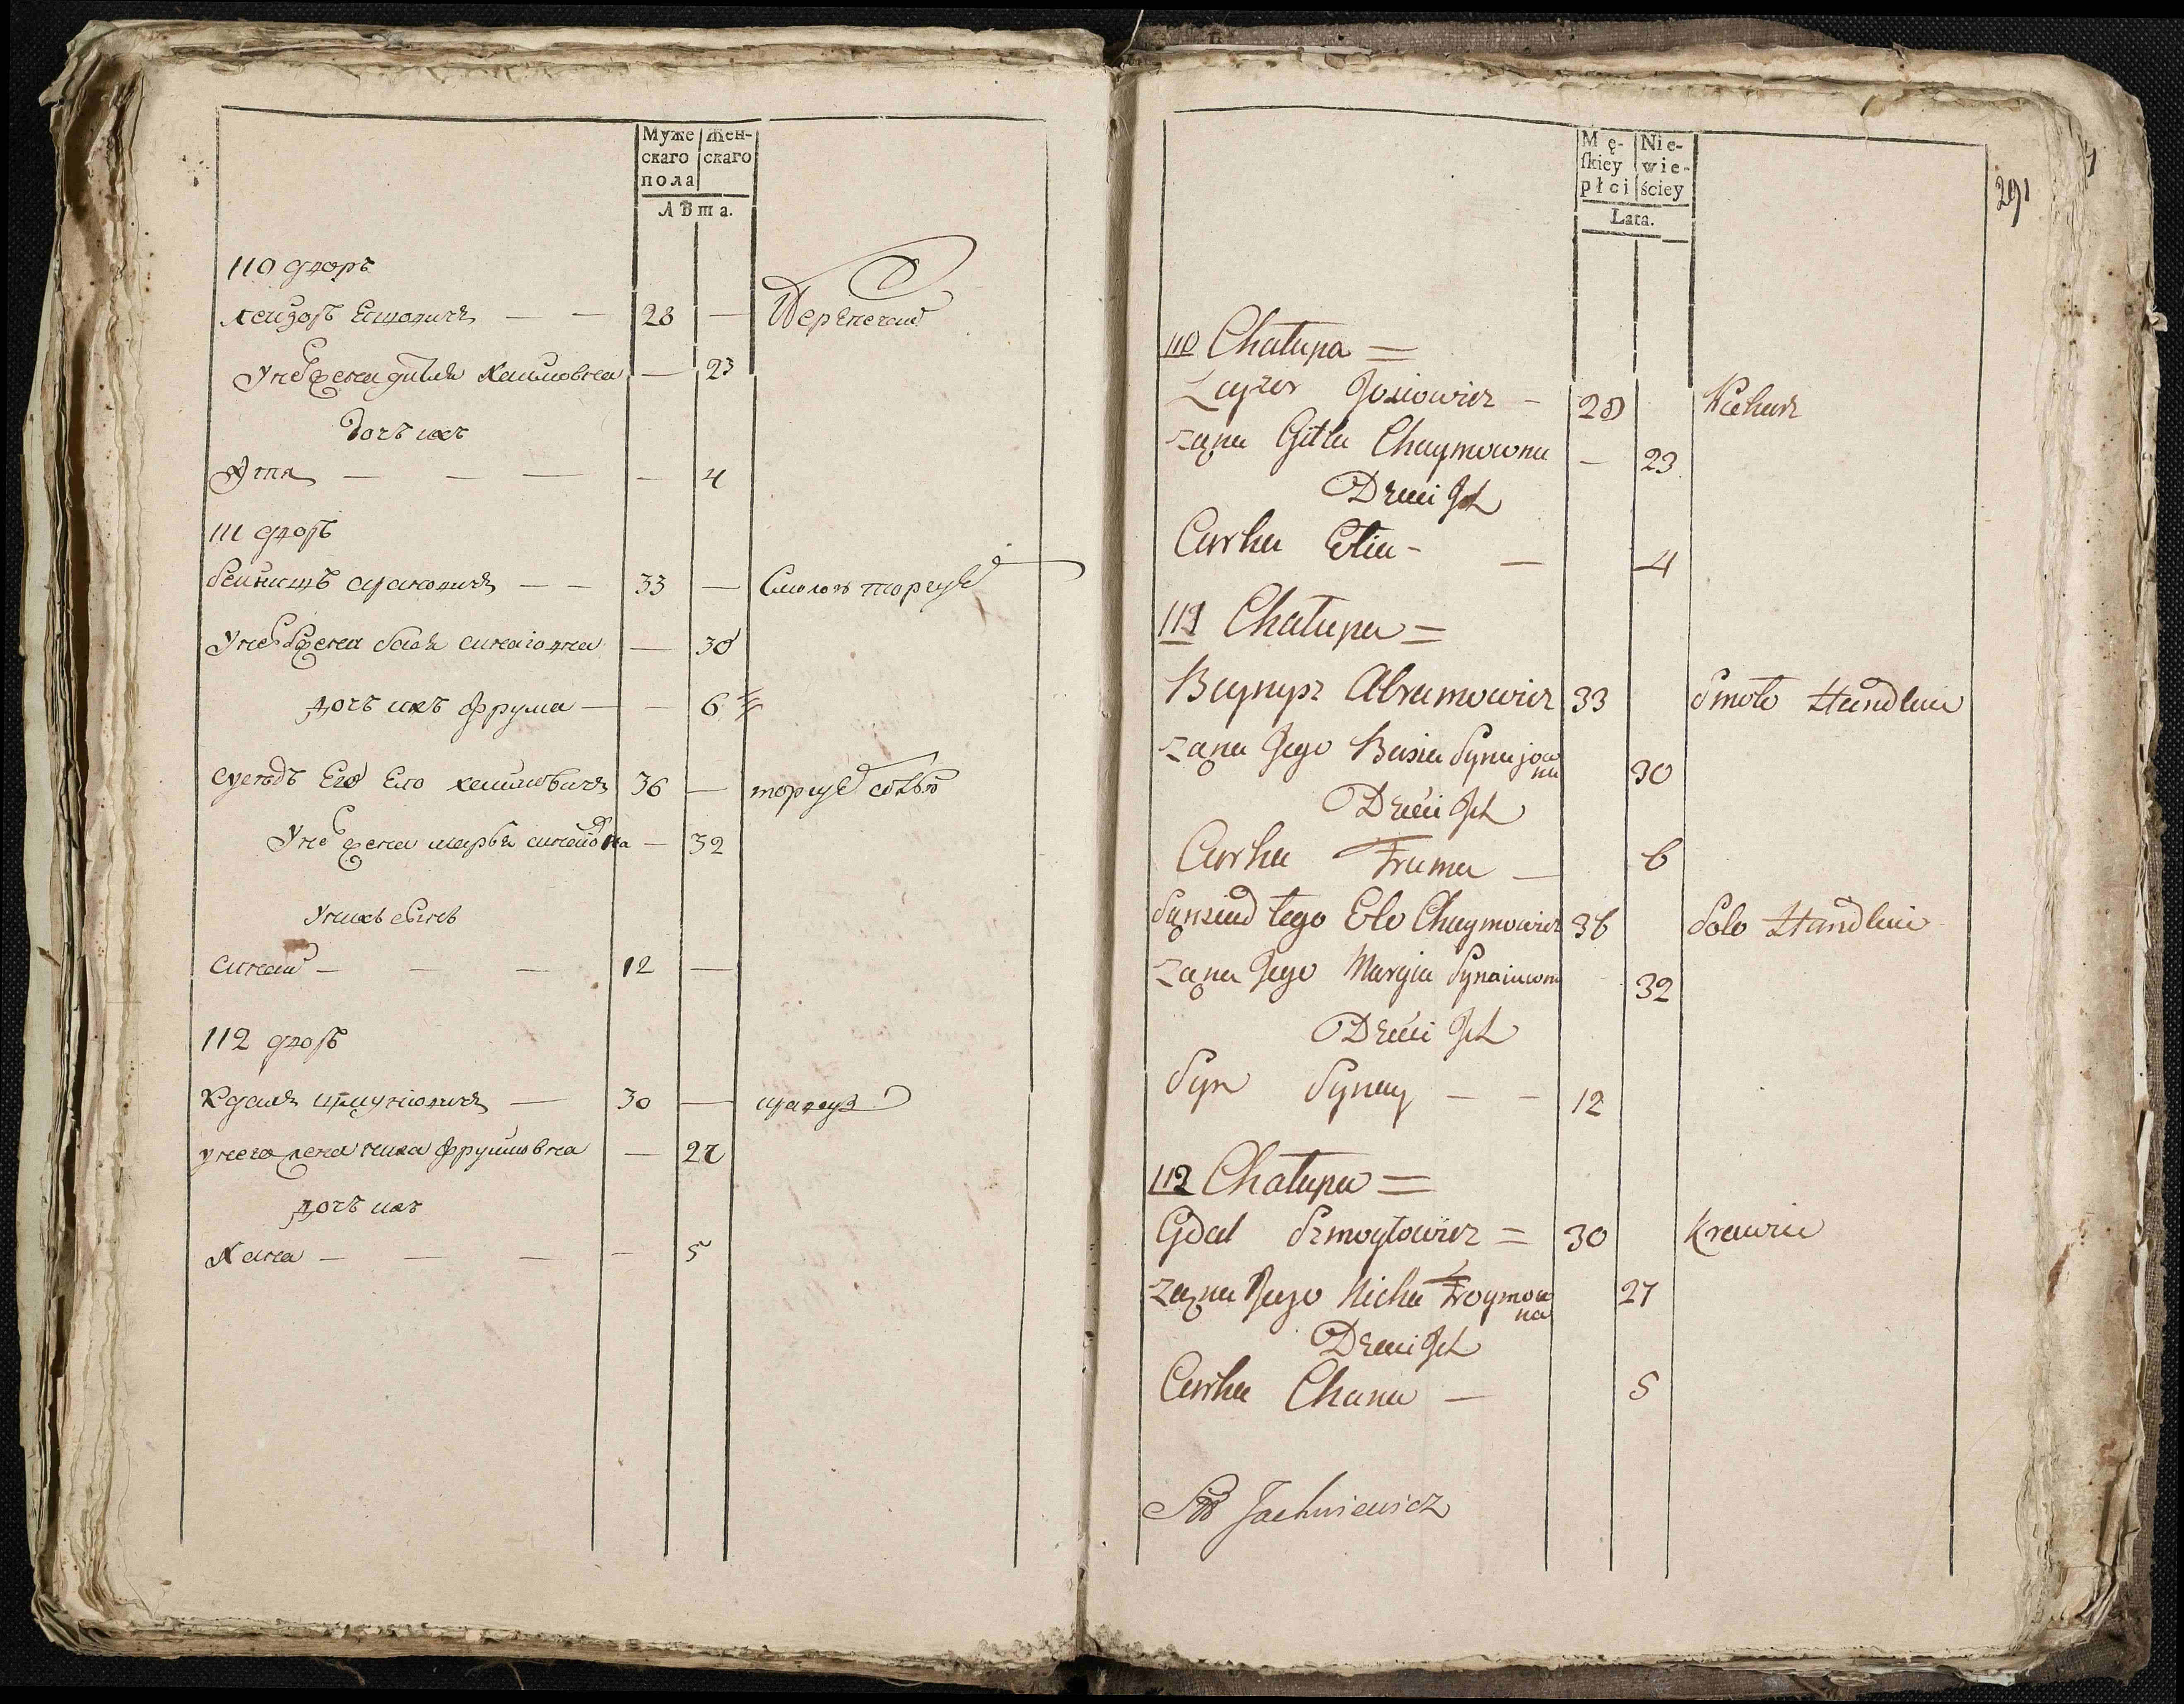 Муже
скаго
пола
Жен-
скаго
Лѣта.
110 дворъ
Лейзоръ Ешовичъ — — 28 —
У него жена Гитля Хаимовна — 23
Дочь ихъ
Этя — — — — 4
111 дворъ
Бейнишъ Абрамовичъ — — 33 — Смолою торгуетъ
У него жена Бася Синаiовна — 30
дочь ихъ Фрума — — 6
Суседъ Его Ело Хеимовичъ 36 — торгуетъ солью
У него жена Марья Синаiовна — 32
У нихъ сынъ
Синай — — — 12 —
112 дворъ
Кдаль Шмуйловичъ — 30 —
у него жена Ниха Фруймовна — 27
дочь ихъ
Хана — — — — 5
Mę-
ſkiey
płci
Nie-
wie-
ściey
Lata.
291
110 Chałupa =
Layzer Josiowicz - 28
żąna Gitla Chaymowna — 23
Dzieci Jch
Curka Etia - — 4
111 Chałupa =
Beynysz Abramowicz 33 Smoło Handluie
żąna Jego Basia Synajow
na 30
Dzieci Jch
Curka Fruma — 6
Sąnsiad tego Elo Chaymowicz 36 Solo Handluie
żąna Jego Margia Synaiuwna 32
Dzieci Jch
Syn Synay — — 12
112 Chałupa =
Gdal Szmoyłowicz = 30 Krawiec
żąna Jego Nicha Froymow
na 27
Dzieci Jch
Curka Chana — 5
Jachniewicz